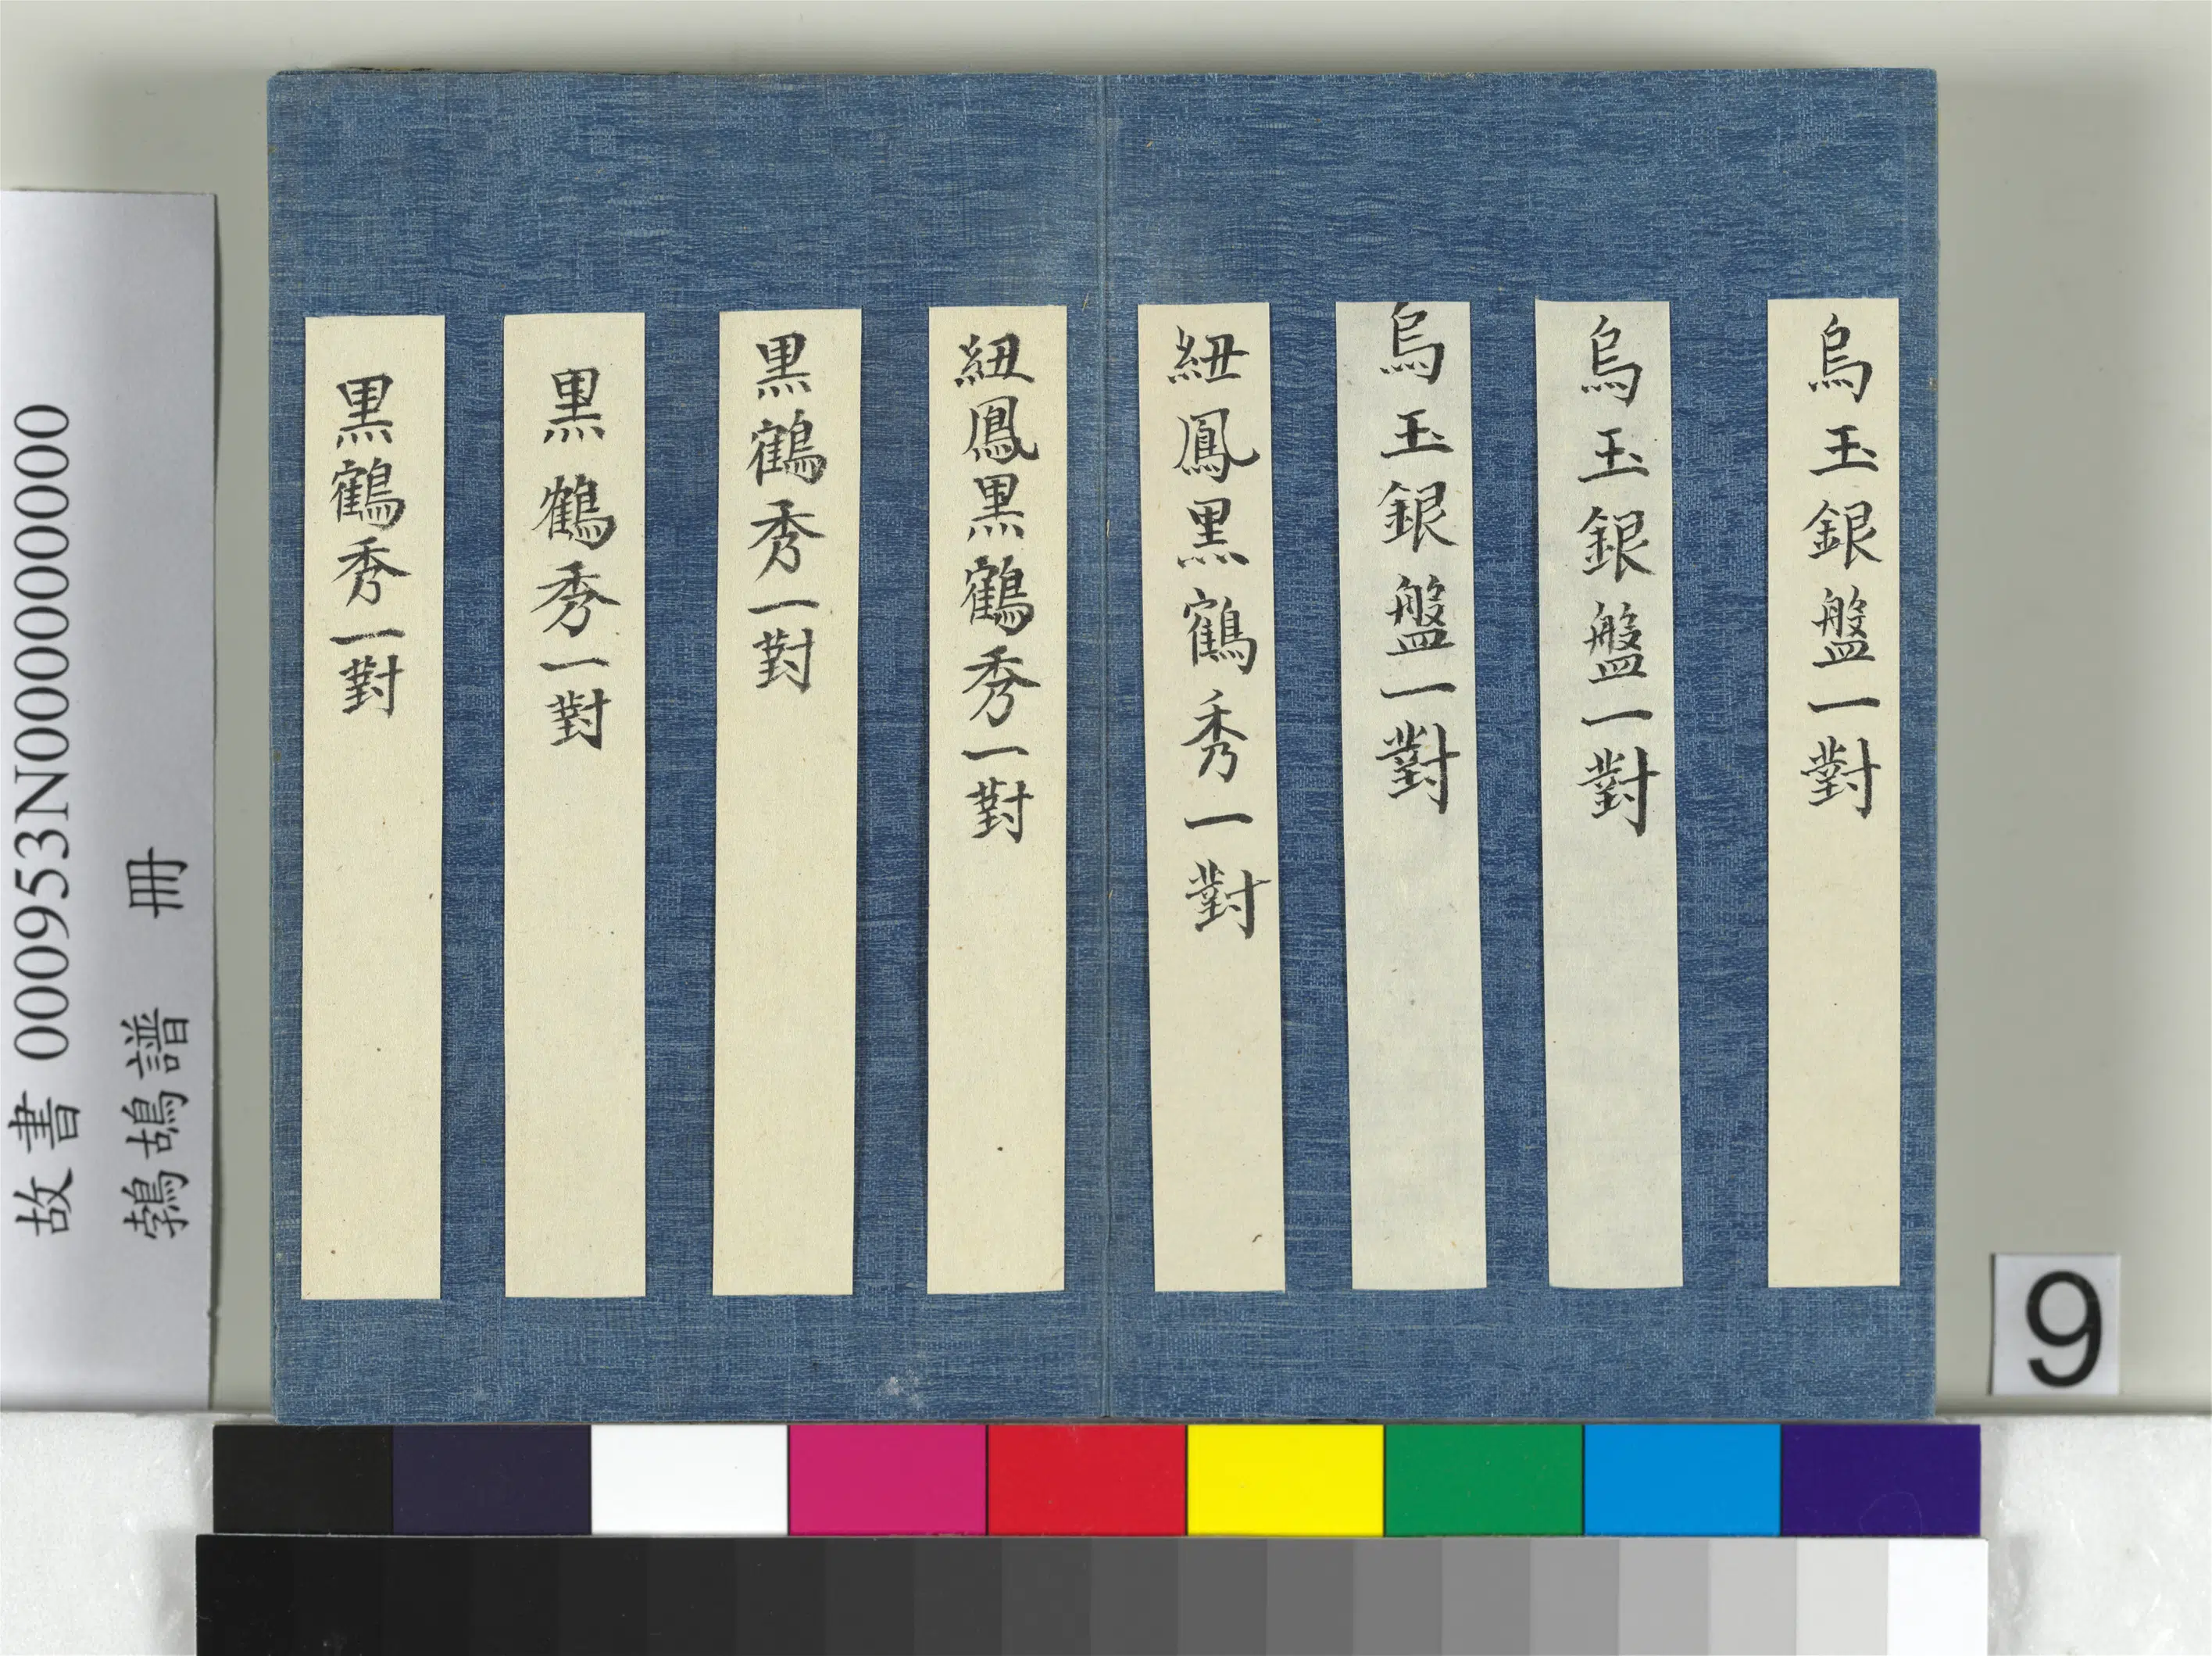 烏玉銀盤一對
烏玉銀盤一對
烏玉銀盤一對
紐鳳黒鶴秀一對
紐鳳黒鶴秀一對
黒鶴秀一對
黒鶴秀一對
黒鶴秀一對
故書 000953N000000000
鵓鴣譜 冊
9